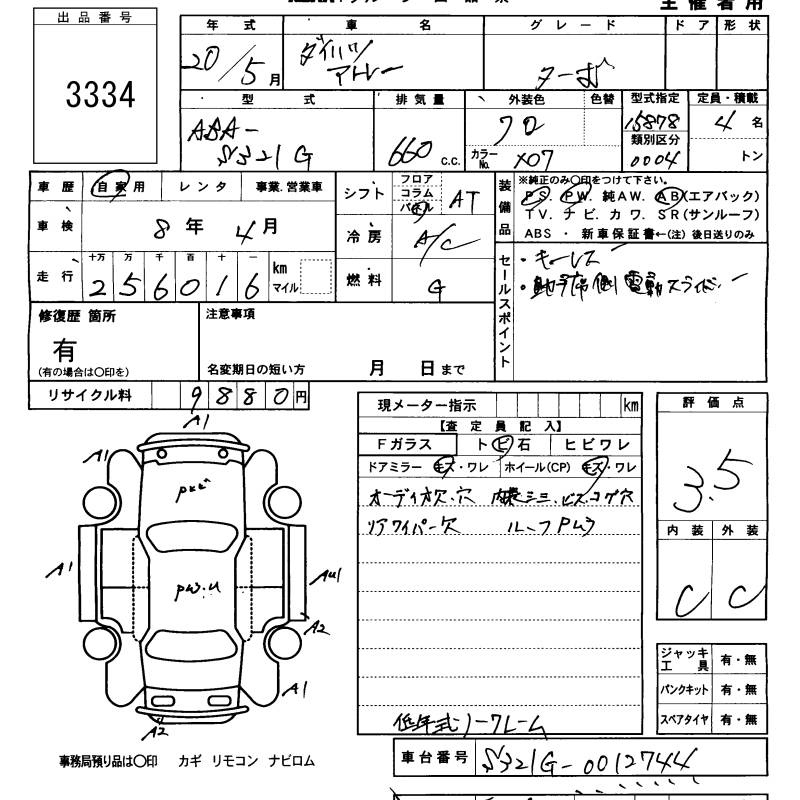 主催者用
出品番号
3334
年式 車名 グレード ドア 形状
20/5月 ダイハツ アトレー ターボ
型式 排気量 外装色 色替 型式指定 定員・積載
ABA-S321G 660 c.c. クロ 15878 4名
カラーNo. X07 類別区分 0004 トン
車歴 自家用 レンタ 事業.営業車
車検 8年4月
走行 十万 万 千 百 十 一
256016 km マイル
シフト フロア コラム パネル AT
冷房 A/C
燃料 G
装備品 ※純正のみ○印をつけて下さい。
PS. PW. 純AW. AB(エアバック)
TV. ナビ. カワ. SR(サンルーフ)
ABS ・ 新車保証書←(注)後日送りのみ
セールスポイント
・キーレス
・助手席側電動スライド
修復歴 箇所
有
(有の場合は○印を)
注意事項
名変期日の短い方 月 日まで
リサイクル料 9880円
現メーター指示 km
【査定員記入】
Fガラス トビ石 ヒビワレ
ドアミラー キズ・ワレ ホイール(CP) キズ・ワレ
オーディオ欠.穴 シミ.ビス.コゲ穴
リアワイパー欠 ルーフPW3
低年式ノークレーム
評価点
3.5
内装 外装
C C
ジャッキ工具 有・無
パンクキット 有・無
スペアタイヤ 有・無
A1
A1
A1
A2
A2
A1
事務局預り品は○印 カギ リモコン ナビロム
車台番号 S321G-0012744